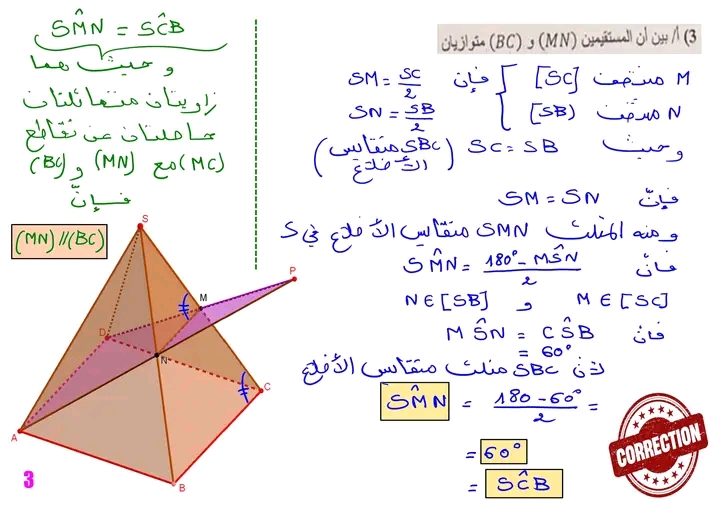 3) أ/ بين أن المستقيمين (MN) و (BC) متوازيان
M منتصف [SC] فإن SM = SC/2
N منتصف [SB] SN = SB/2
وحيث SC = SB (SBC متقايس الأضلاع)
فإنّ SM = SN
ومنه المثلث SMN متقايس الأضلاع في S
فإنّ SM̂N = (180° - MŜN)/2
M ∈ [SC] و N ∈ [SB]
فإن MŜN = CŜB
= 60°
لأن SBC مثلث متقايس الأضلاع
SM̂N = (180 - 60°)/2 =
= 60°
= SĈB
SM̂N = SĈB
وحيث هما
زاويتان متماثلتان
حاصلتان عن تقاطع
(MC) مع (MN) و (BC)
فإنّ
(MN) // (BC)
S
P
M
D
N
C
A
B
3
CORRECTION